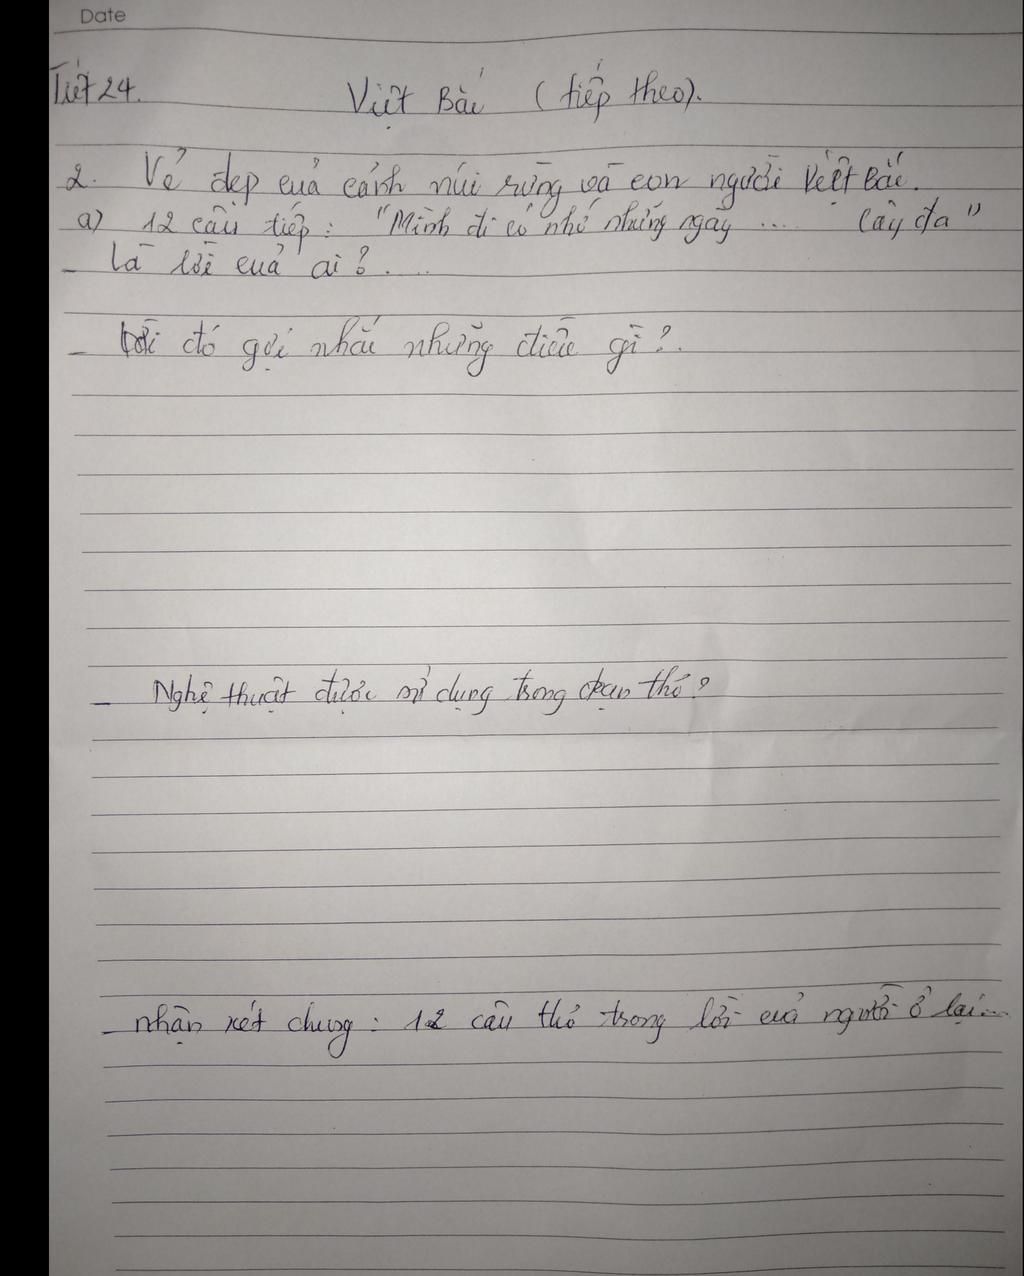 Date
Tiết 24.
Việt Bắc (tiếp theo).
2. Vẻ đẹp của cảnh núi rừng và con người Việt Bắc.
a) 12 câu tiếp : "Mình đi có nhớ những ngày .... Cây đa"
- Là lời của ai ? . ...
- Lời đó gợi nhắc những điều gì ? .
- Nghệ thuật được sử dụng trong đoạn thơ ?
- nhận xét chung : 12 câu thơ trong lời của người ở lại ...